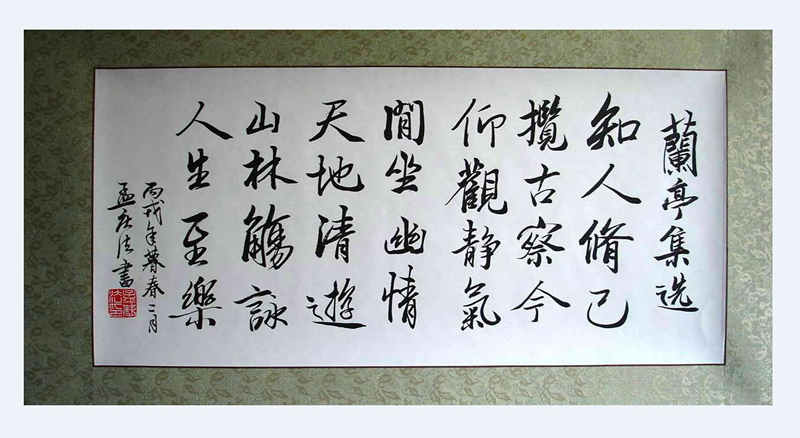 蘭亭集选
知人脩己
攬古察今
仰觀静氣
閒坐幽情
天地清遊
山林觴詠
人生至樂
丙戌年暮春二月
孟庆法書